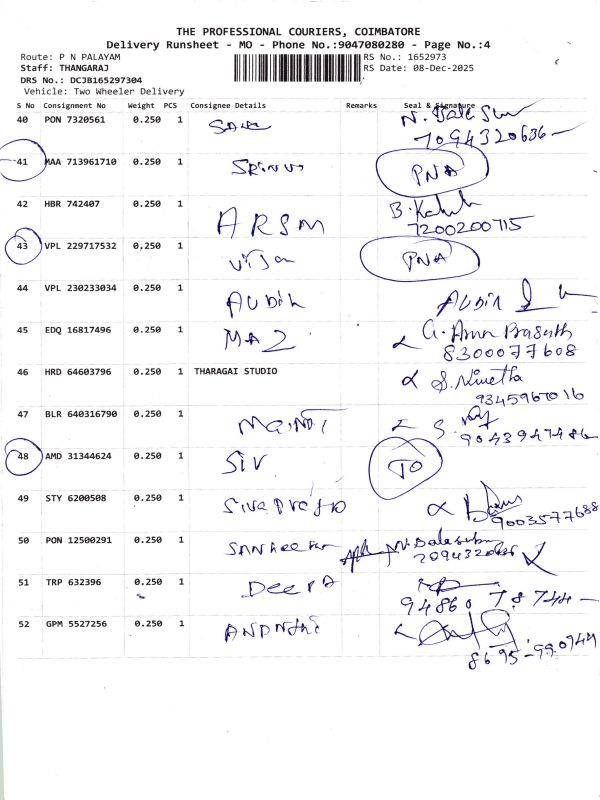 THE PROFESSIONAL COURIERS, COIMBATORE
Delivery Runsheet - MO - Phone No.:9047080280 - Page No.:4
Route: P N PALAYAM RS No.: 1652973
Staff: THANGARAJ RS Date: 08-Dec-2025
DRS No.: DCJB165297304
Vehicle: Two Wheeler Delivery
S No Consignment No Weight PCS Consignee Details Remarks Seal & Signature
40 PON 7320561 0.250 1
7094320636
41 MAA 713961710 0.250 1 PNA
42 HBR 742407 0.250 1 ARSM B.
7200200715
43 VPL 229717532 0,250 1 PNA
44 VPL 230233034 0.250 1 AUDIN
45 EDQ 16817496 0.250 1 MAZ
8300077608
46 HRD 64603796 0.250 1 THARAGAI STUDIO S. Nivetha
9345967016
47 BLR 640316790 0.250 1 S.
9043947486
48 AMD 31344624 0.250 1 SIV TO
49 STY 6200508 0.250 1
9003577688
50 PON 12500291 0.250 1
51 TRP 632396 0.250 1 DEEPA
94860 78 744
52 GPM 5527256 0.250 1
8695-990744